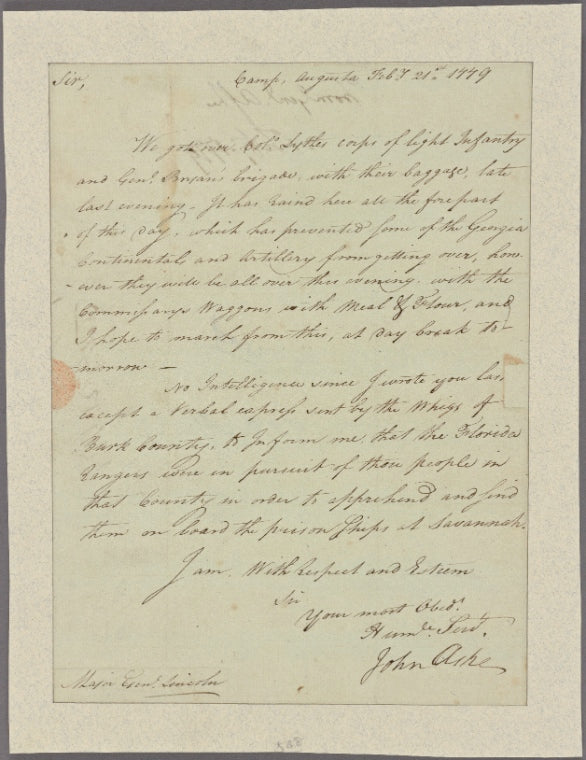 Sir,
Camp, Augusta Feby 21st 1779
We got over Colo. Lythes corps of light Infantry
and Genl. Bryans brigade, with their baggage, late
last evening. It has raind here all the forepart
of this day, which has prevented some of the Georgia
Continentals and Artillery from getting over, how-
ever they will be all over this evening. with the
Commissarys Waggons with Meal & Flour, and
I hope to march from this, at day break to-
morrow —
No Intelligence since I wrote you las
except a Verbal express sent by the Whigs of
Burk County, to Inform me that the Florida
Rangers were in pursuit of those people in
that County in order to apprehend and send
them on board the prison Ships at Savannah.
I am With Respect and Esteem
Sir
Your most Obedt.
Humle. Servt.
John Ashe
Major Genl. Lincoln
588